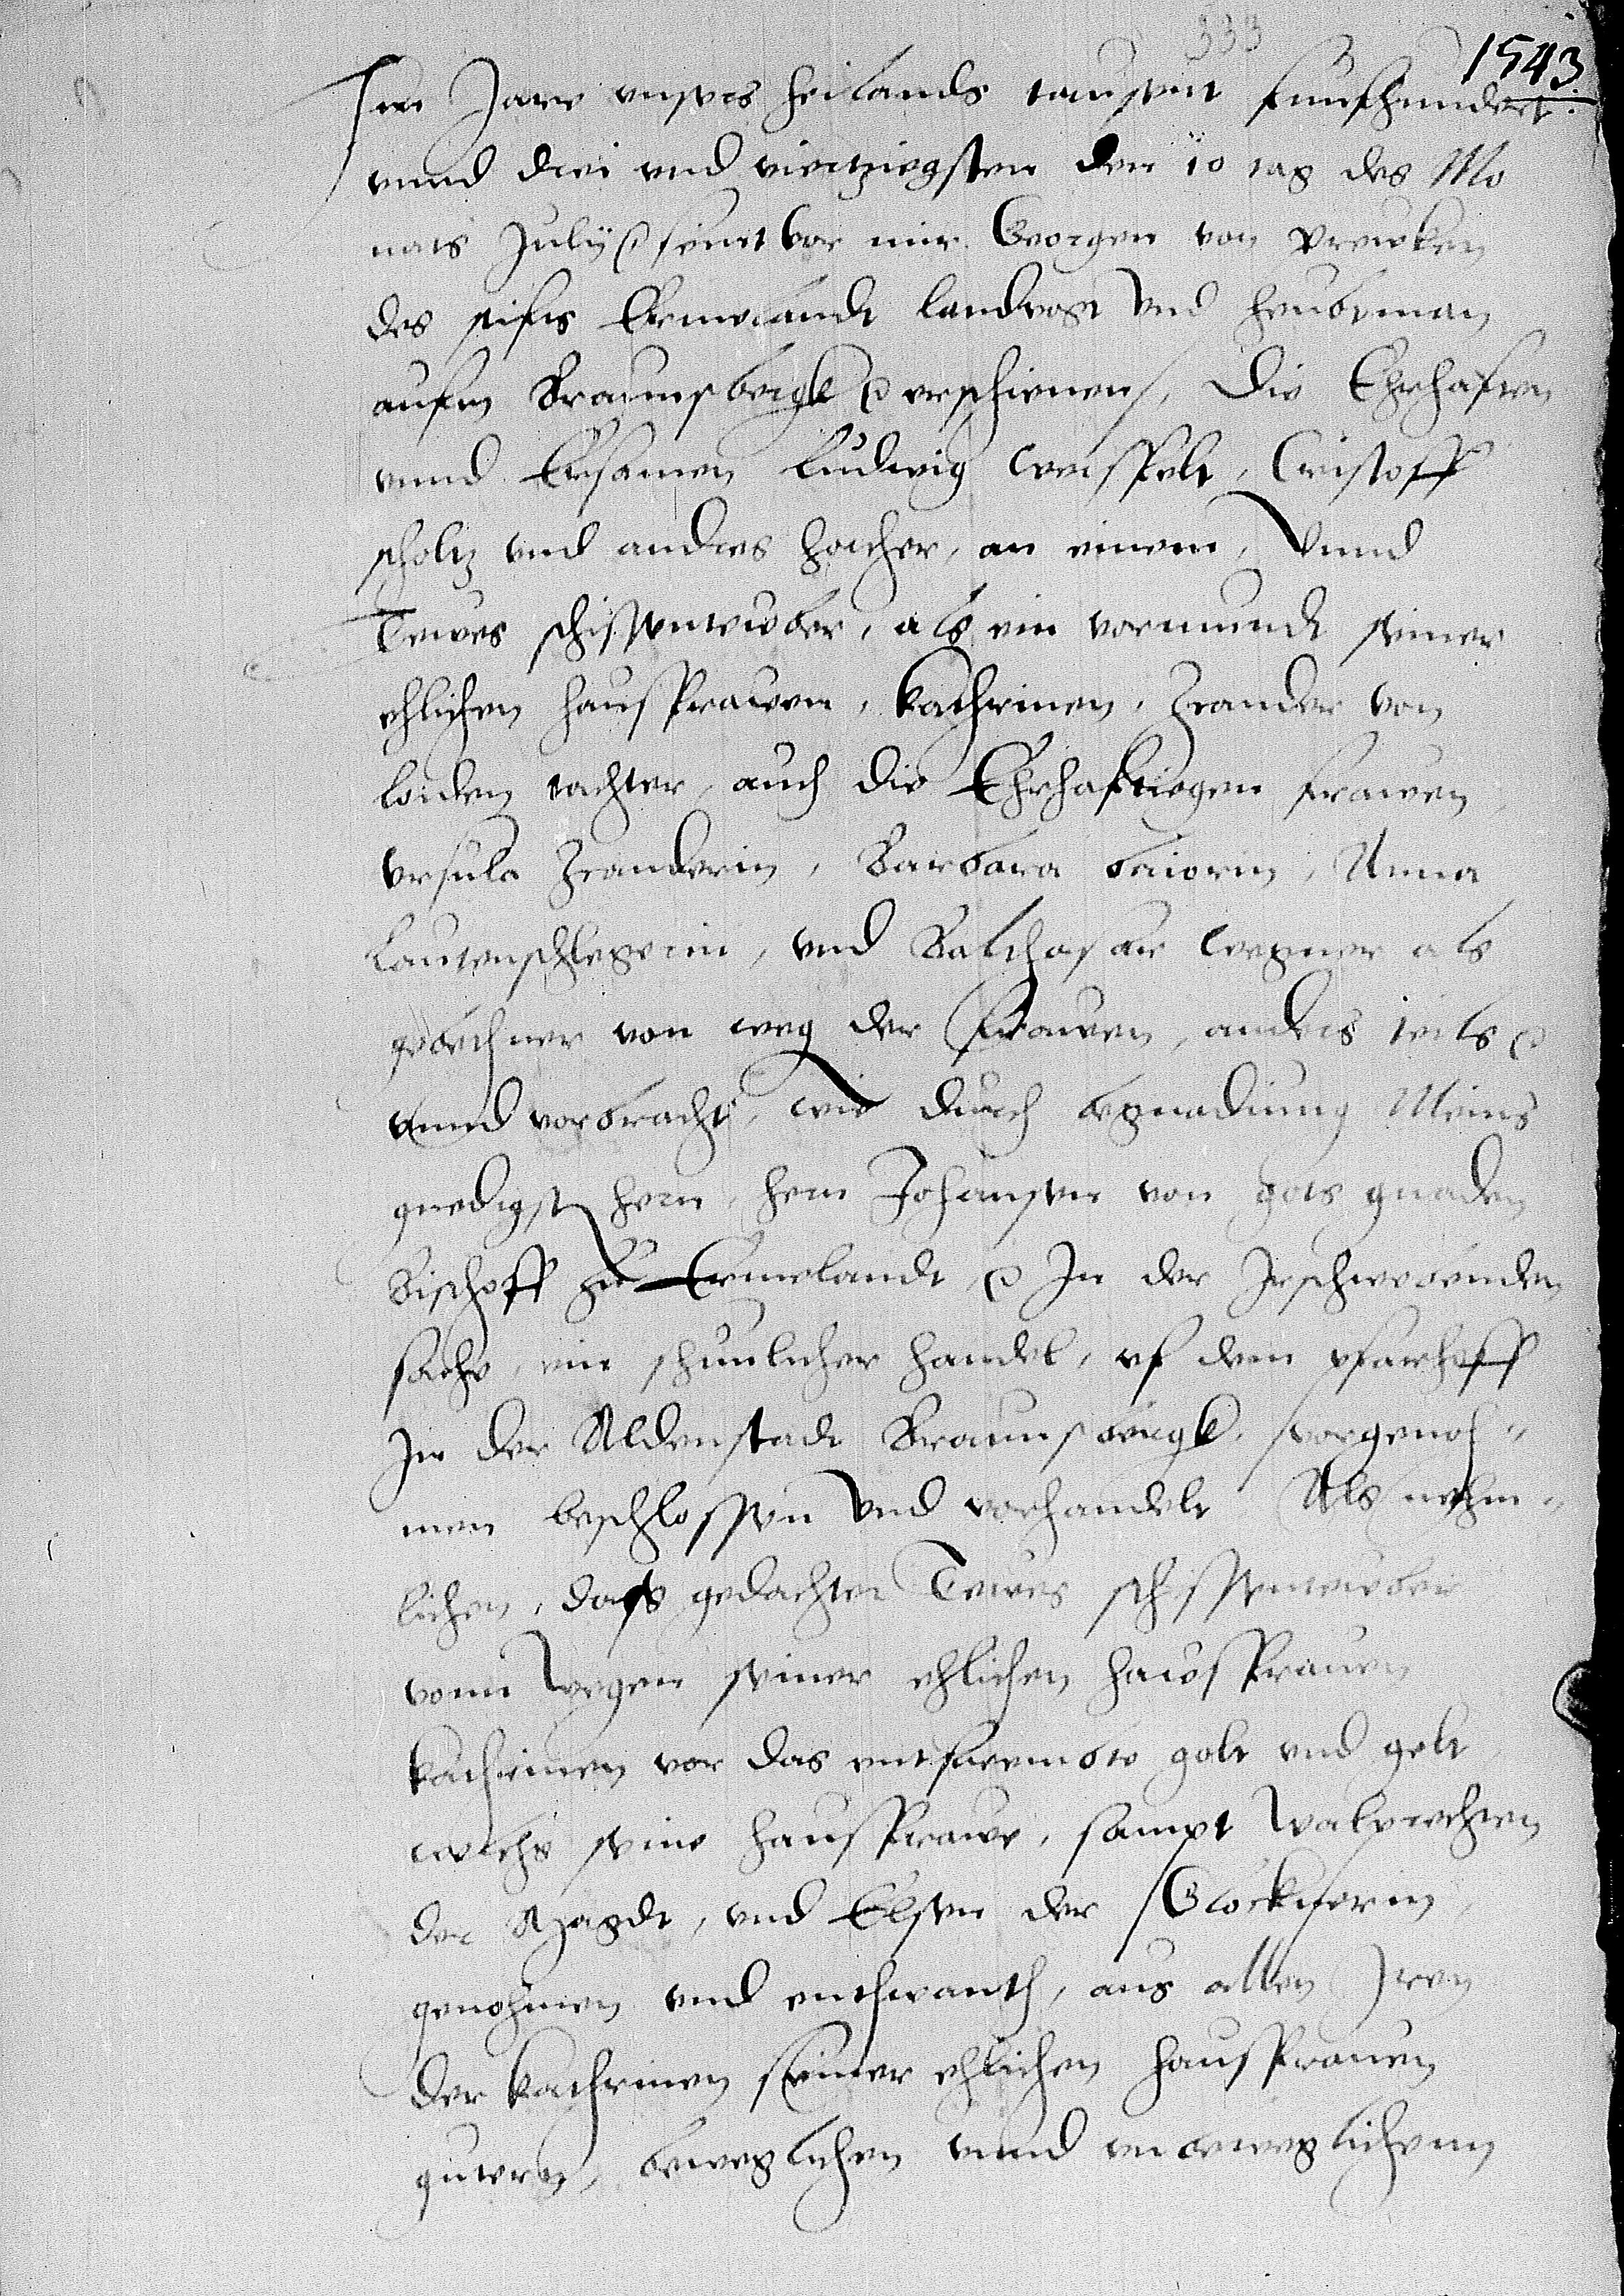 333
1543
Im Jare unsers heilands tausent funfhundert
unnd drei und viertziegsten den 10 tag des Mo
nats July seint vor mir Georgen von Preucken
des stifts Ermelandt landvogt und heubtman
aufm Braunsbergk erschienen, Die Erhaften
unnd Ersamen Ludwig Cristoff
scholtz und andres hacher, an einem, Unnd
Tewes schissenteuber, als ein vormundt seiner
ehlichen hausfrawen, Kathrinen, Zander von
loiden tachter, auch die Ehrhaftiegen frawen
Ursula Zanderin, Barbara baiorin, Anna
Lautenschlegerin, und Balthasar wegner als
von weg der frawen, anders teils
unnd vorbracht, wie durch begnadiung Meins
gnedigst hern, hern Johansen von gots gnaden
Bischoff zu Ermelandt, In der Irschwebenden
sache, ein schunlicher handel, uf dem pfarhoff
In der Aldenstadt Braunsbergk, vorgenoh=
men beschlossen und vorhandelt Als nehm=
lichen, dass gedachter Tewes schissenteuber
vonn wegen seiner ehlichen hausfrauen
Kathrinen vor das entfrembte golt und gelt
welchs seine hausfrawe, sampt walprechten
der Magdt, und Elsen der Glocknerin
genohmen und enthwanth, aus allen Iren
der Kathrinen seiner ehlichen hausfrauen
gutern, beweglichen unnd unbeweglichenn